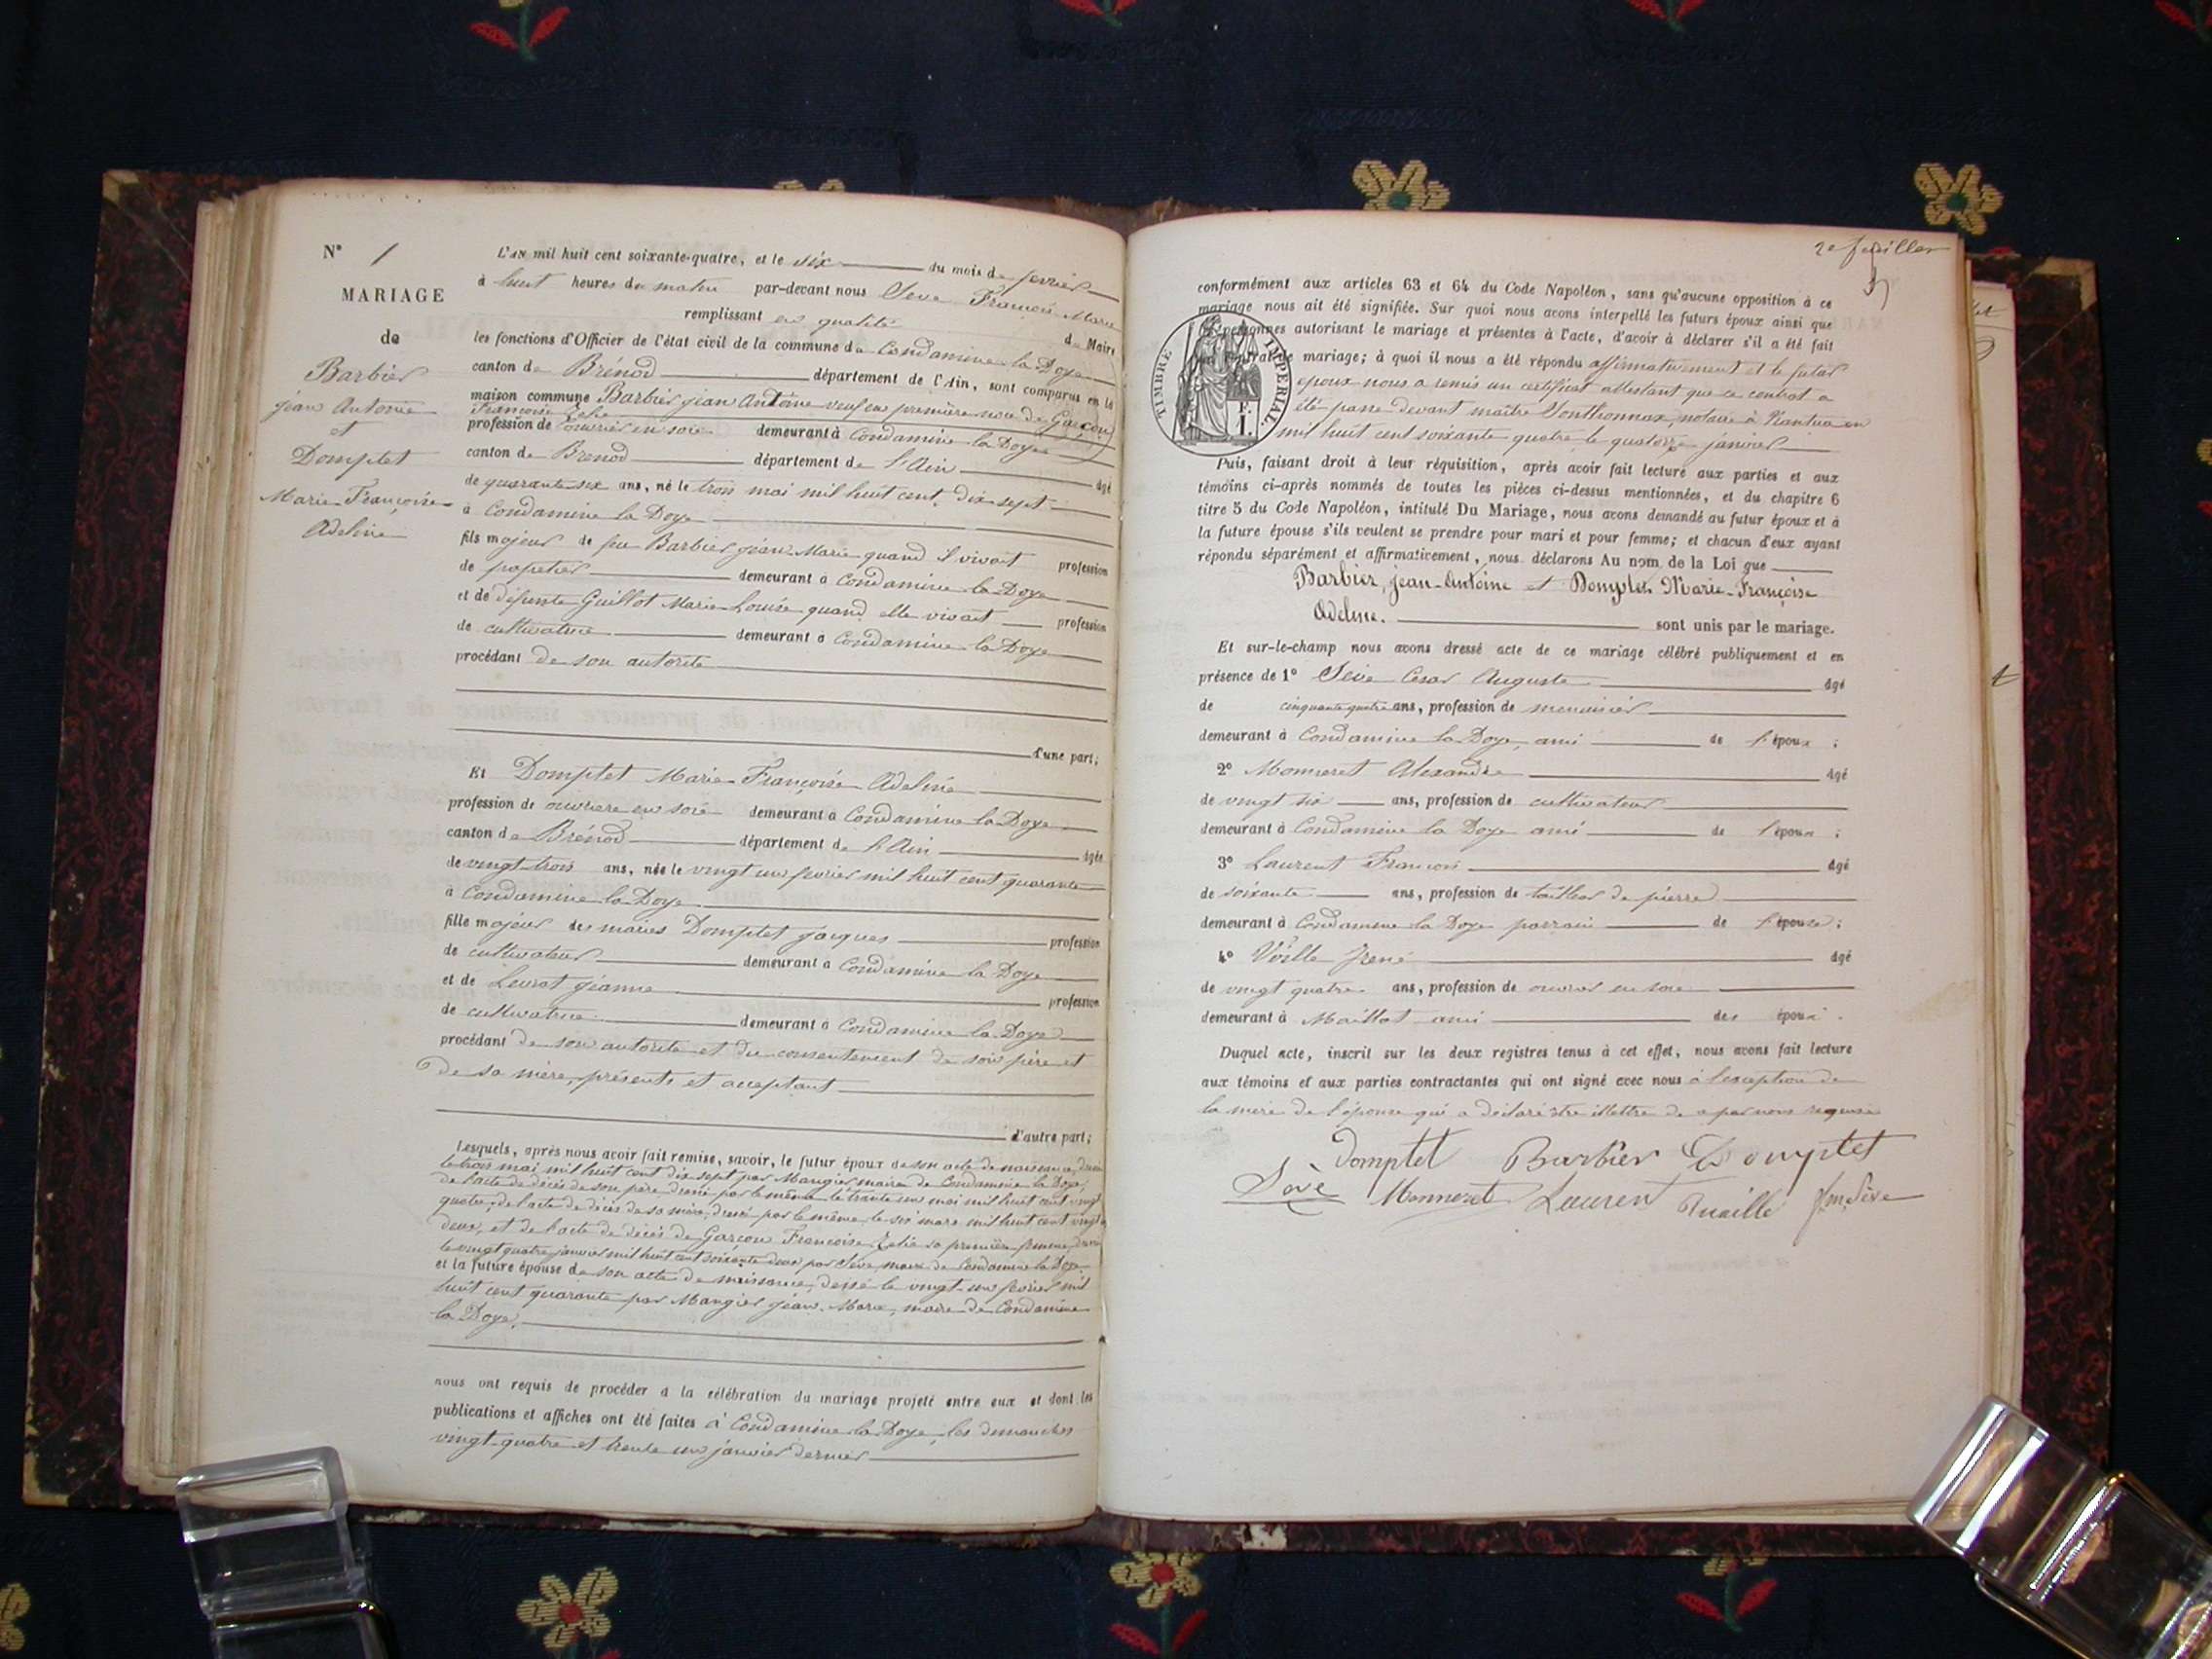 N° 1
MARIAGE
de
Barbier
jean Antoine
et
Domptet
Marie Françoise
Adeline
L'AN mil huit cent soixante-quatre, et le six du mois de fevrier
à huit heures du matin par-devant nous Seve François Marie
remplissant en qualité de Maire
les fonctions d'Officier de l'état civil de la commune de Condamine la Doye
canton de Brénod département de l'Ain, sont comparus en la
maison commune Barbier jean Antoine veuf en première noce de Garçon
Françoise Zelie
profession de ouvrier en soie demeurant à Condamine la Doye
canton de Brenod département de l'Ain âgé
de quarante six ans, né le trois mai mil huit cent dix sept
à Condamine la Doye
fils majeur de feu Barbier jean Marie quand il vivait profession
de demeurant à Condamine la Doye
et de défunte Guillot Marie Louise quand elle vivait profession
de cultivatrice demeurant à Condamine la Doye
procédant de son autorité
d'une part;
Et Domptet Marie Françoise Adeline
profession de ouvriere en soie demeurant à Condamine la Doye
canton de Brénod département de l'Ain âgée
de vingt trois ans, née le vingt un fevrier mil huit cent quarante
à Condamine la Doye
fille majeur des maries Domptet jacques profession
de cultivateur demeurant à Condamine la Doye
et de Levrat jeanne profession
de cultivatrice demeurant à Condamine la Doye
procédant de son autorité et du consentement de son père et
de sa mère, présents et acceptant
d'autre part;
Lesquels, après nous avoir fait remise, savoir, le futur époux de son acte de naissance, dressé
le trois mai mil huit cent dix sept par Mangier maire de Condamine la Doye,
de l'acte de décès de son père dressé par le même le trente un mai mil huit cent vingt
quatre, de l'acte de décès de sa mère, dressé par le même le six mars mil huit cent vingt
deux, et de l'acte de décès de Garçon Françoise Zelie sa première femme, dressé
le vingt quatre janvier mil huit cent soixante deux par Seve, maire de Condamine la Doye
et la future épouse de son acte de naissance, dressé le vingt un fevrier mil
huit cent quarante par Mangier jean Marie, maire de Condamine
la Doye.
nous ont requis de procéder à la célébration du mariage projeté entre eux et dont les
publications et affiches ont été faites à Condamine la Doye, les dimanches
vingt quatre et trente un janvier dernier
2e feuillet
conformément aux articles 63 et 64 du Code Napoléon, sans qu'aucune opposition à ce
mariage nous ait été signifiée. Sur quoi nous avons interpellé les futurs époux ainsi que
les personnes autorisant le mariage et présentes à l'acte, d'avoir à déclarer s'il a été fait
un contrat de mariage; à quoi il nous a été répondu affirmativement et le futur
époux nous a remis un certificat attestant que ce contrat a
été passé devant maître Sonthonnax, notaire à Nantua en
mil huit cent soixante quatre le quatorze janvier
TIMBRE IMPERIAL
Puis, faisant droit à leur réquisition, après avoir fait lecture aux parties et aux
témoins ci-après nommés de toutes les pièces ci-dessus mentionnées, et du chapitre 6
titre 5 du Code Napoléon, intitulé Du Mariage, nous avons demandé au futur époux et à
la future épouse s'ils veulent se prendre pour mari et pour femme; et chacun d'eux ayant
répondu séparément et affirmativement, nous déclarons Au nom de la Loi que
Barbier, jean-Antoine et Domptet Marie-Françoise
Adeline. sont unis par le mariage.
Et sur-le-champ nous avons dressé acte de ce mariage célébré publiquement et en
présence de 1° Sève Cesar Auguste âgé
de cinquante quatre ans, profession de menuisier
demeurant à Condamine la Doye, ami de l'époux ;
2° Monneret Alexandre âgé
de vingt six ans, profession de cultivateur
demeurant à Condamine la Doye ami de l'époux ;
3° Laurent François âgé
de soixante ans, profession de tailleur de pierre
demeurant à Condamine la Doye parrain de l'épouse ;
4° âgé
de vingt quatre ans, profession de en soie
demeurant à Maillat ami des époux.
Duquel acte, inscrit sur les deux registres tenus à cet effet, nous avons fait lecture
aux témoins et aux parties contractantes qui ont signé avec nous à l'exception de
la mère de l'épouse qui a déclaré être illettre de a par nous requise
Domptet Barbier Domptet
Sève Monneret Laurent Sève